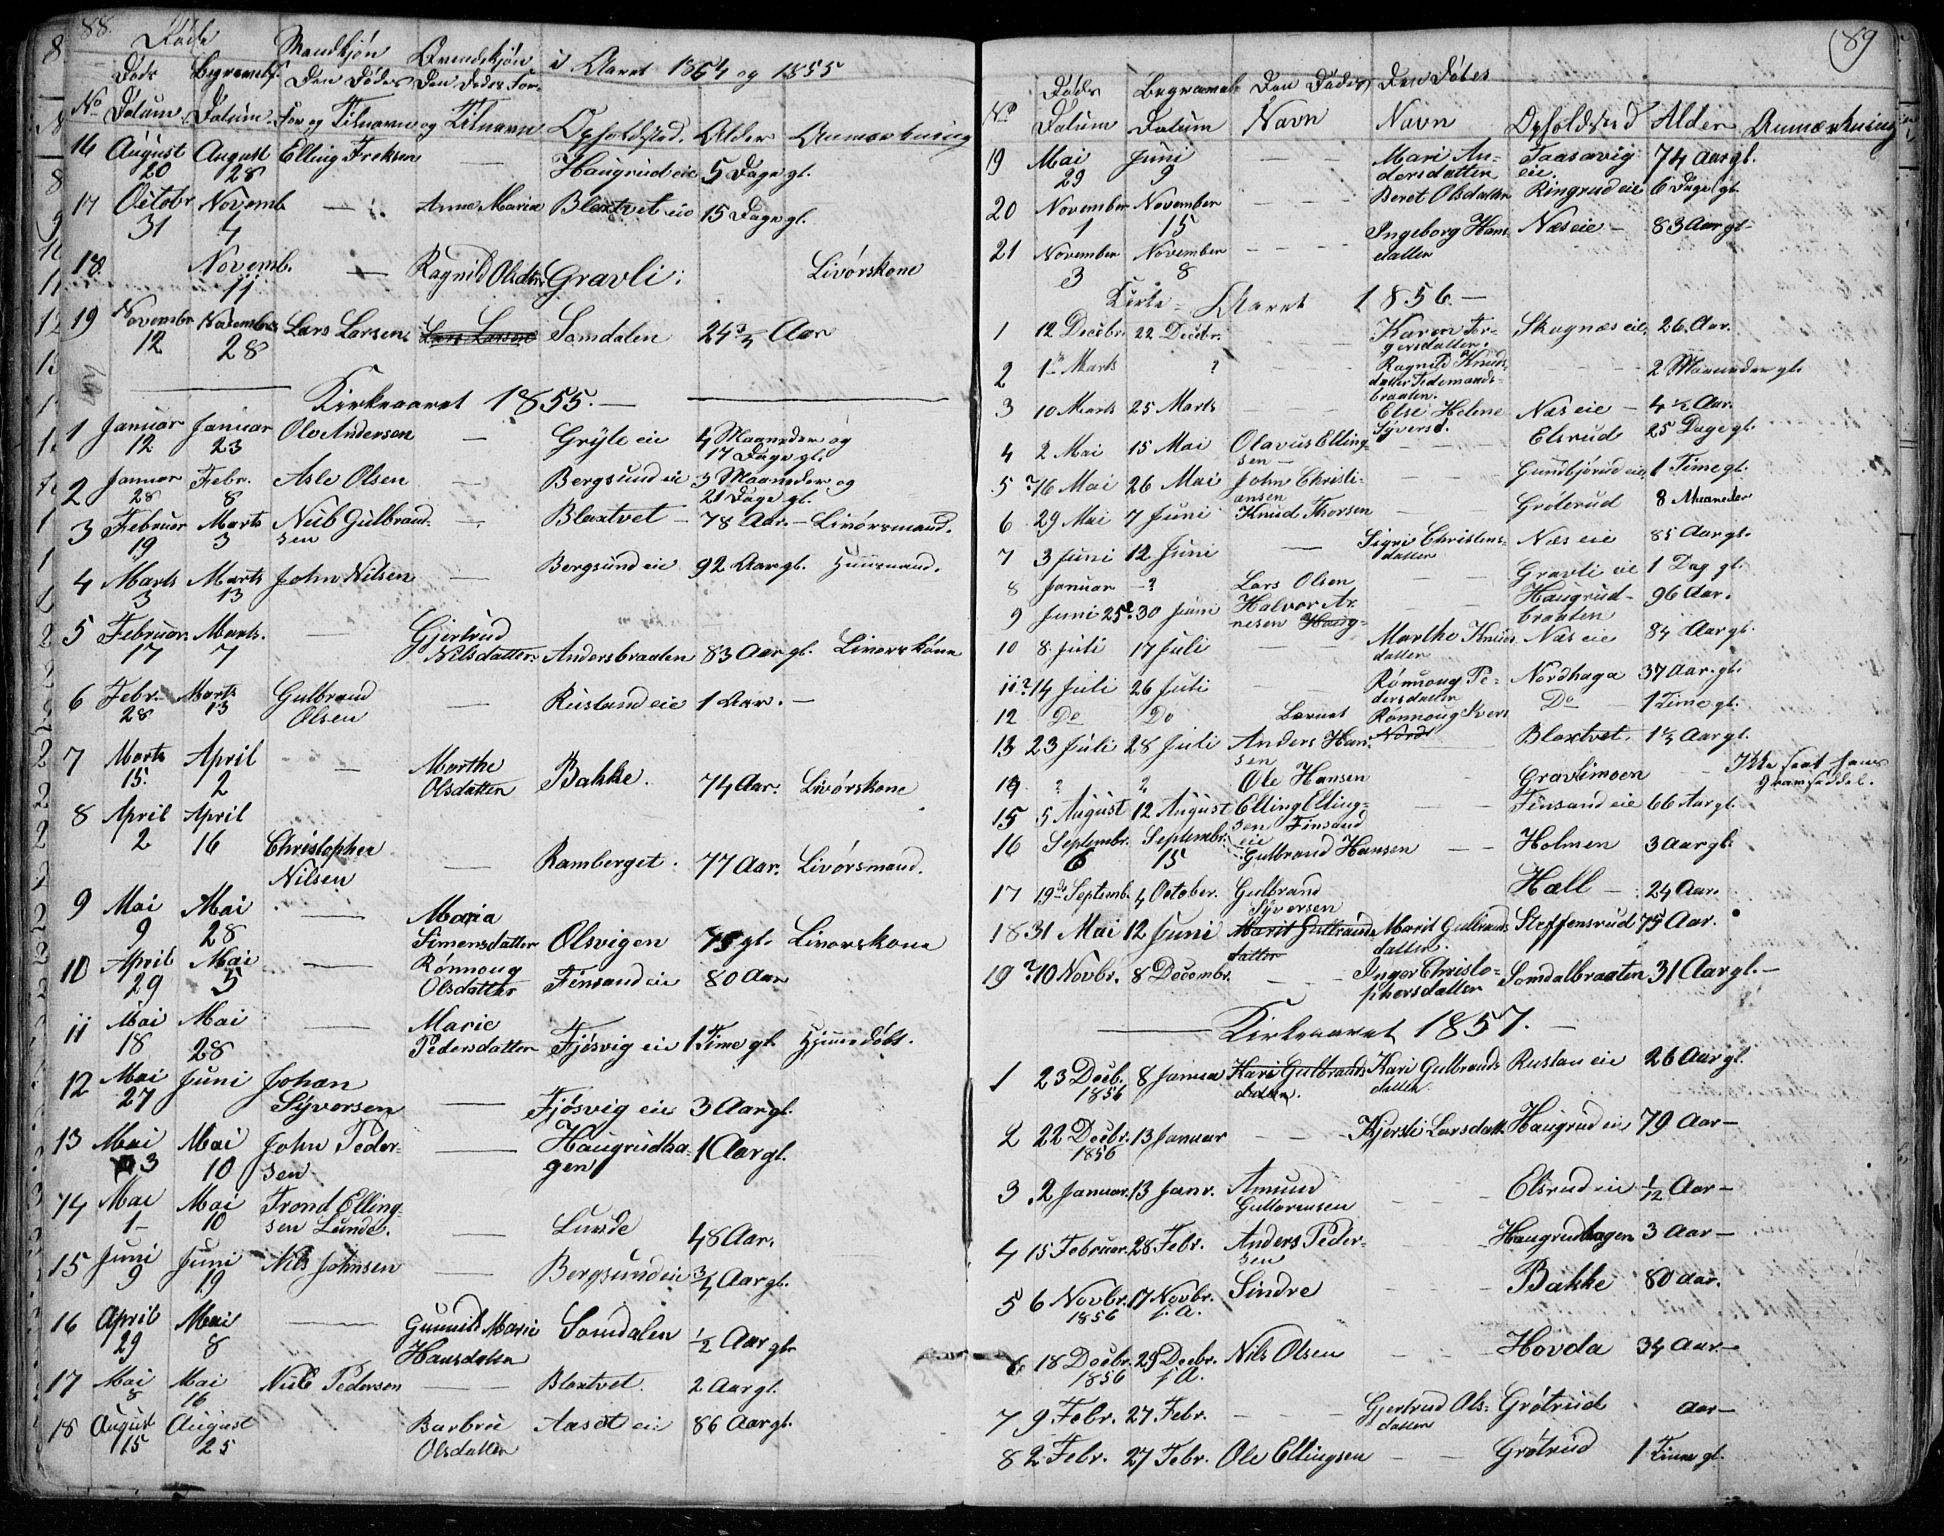 88.
Døde Mandkjøn Qvindekjøn i Aaret 1854 og 1855
Døds Begravels. Den Dødes Den Dødes For-
No Datum. Datum. For og Tilnavn og Tilnavn Opholdsted. Alder Anmærkning
16 August August Elling Ereksen — Haugrud eie 5 Dage gl.
20 28
17 Octobr Novemb — Anne Maria Bloxtvet eie 15 Dage gl.
31 4
18. Novemb. — Ragnild Olsdtr Gravli. Livørskone
11
19 Novembr Novembr Lars Larsen Lars Larsen Somdalen 24 3/4 Aar
12 28
Kirkeaaret 1855. —
1 Januar Januar Ole Andersen — Gryte eie 4 Maaneder og
12 23 17 Dage gl.
2 Januar Febr. Asle Olsen — Bergsund eie 3 Maaneder og
28 8 21 Dage gl.
3 Februar Marts Niels Gulbrand- — Bloxtvet — 78 Aar. — Livørsmand.
19 3 sen
4 Marts Marts John Nilsen — Bergsund eie 92 Aar gl. Huusmand.
3 13
5 Februar Marts. — Gjertrud
17 7 Nilsdatter Andersbraaten 83 Aar gl. Livørskone
6 Febr. Marts Gulbrand — Rustand eie 1 Aar. —
28 13 Olsen
7 Marts April — Marthe Bakke. 74 Aar. Livørskone
15. 2 Olsdatter
8 April April
2 16 Christopher — Ramberget. 77 Aar. Livørsmand.
Nilsen
9 Mai Mai — Maria
9 28 Simensdatter Olsvigen 75 gl. Livørskone
10 April Mai — Rønnoug Finsand eie 80 Aar
29 5 Olsdatter
11 Mai Mai — Marie
18 28 Pedersdatter Fjøsvig eie 1 Time gl. Hjemmedøbt.
12 Mai Juni Johan
27 Syversen — Fjøsvig eie 3 Aar gl.
13 Mai Mai John Peder- — Haugrudha- 1 Aar gl.
3 10 sen gen
14 Mai Mai Trond Elling-
1 — 10 sen Lunde. — Lunde 48 Aar.
15 Juni Juni Nils Johnsen — Bergsund eie 3/4 Aar gl.
9 19
16 April Mai — Gunnild Marie Somdalen 1/2 Aar gl.
29 8 Hansdatter
17 Mai Mai Niels Pedersen — Bloxtvet. 2 Aar gl.
8 16
18 August August Barbroe Aaset eie 86 Aar gl.
15 25 Olsdatter
89
Døds Begravels Den Dødes Den Dødes
No Datum Datum Navn Navn Opholdsted Alder Anmærkning
19 Mai Juni — — Mari An- Taasavig 74 Aar gl.
29 9 dersdatter eie.
20 November November — — — Beret Olsdatter Ringrud eie 6 Dage gl.
1 15
21 November November — — — Ingeborg Hans- Næs eie — 83 Aar gl.
3 8 datter
Kirke - Aaret 1856. —
1 12 Decbr. 22 Decbr. — Karen Tor- Skagnæs eie 26 Aar.
gersdatter.
2 1. Marts ? Ragnild Knuds- — — 2 Maaneder gl.
datter Tidemands-
braaten.
3 10 Marts 25 Marts — — — Else Helene Næs eie — 4 1/2 Aar.
Syversd.
4 2 Mai 15 Mai Olavus Elling- — — Elsrud 25 Dage gl.
sen —
5 ?16 Mai 26 Mai John Christi- — — Gundbjørud eie 1 Time gl.
ansen
6 29 Mai 7 Juni Knud Thorsen — — Grøterud 8 Maaneder
7 3 Juni 12 Juni — Sigri Christens- Næs eie 85 Aar gl.
datter
8 Januar — ? Lars Olsen — — Gravli eie 1 Dag gl.
9 Juni 25? 30 Juni Halvor Ar- — — Haugrud- 96 Aar.
nesen Haug- braaten
10 8. Juli 17 Juli — — Marthe Knuds- Næs eie 84 Aar gl.
datter
11 ?14 Juli 26 Juli — — Rønnoug Pe- Nordhaga 37 Aar. gl.
dersdatter
12 Do Do Barnet Rønnoug Ivers Do — 1 Time gl.
13 23 Juli 28 Juli Anders Han- Nords — Bloxtvet. 1 1/2 Aar gl.
sen
14 ? ? Ole Hansen — — Gravlimoen — Ikke seet hans
Gravseddel.
15 5 August 12 August Elling Elling- — — Finsand eie 66 Aar gl.
sen Finsand
eie
16 Septembr. Septembr. Gulbrand Hansen — — Holmen 3 Aar gl.
6 15
17 19de Septemb. 4 October. Gulbrand Hall — 24 Aar.
Syversen
18 31 Mai 12 Juni Marit Gulbrands Marit Gulbrands Steffensrud 75 Aar.
datter datter.
19 ?10 Novbr. 8 Decembr. — — Inger Christo- Somdalbraaten 31 Aar gl. —
phersdatter
— Kirkeaaret 1857. —
1 23 Decb. 8 Januar Kari Gulbrands Kari Gulbrands Rustan eie 26 Aar gl.
1856 datter. datter.
2 22 Decbr. 13 Januar — — Kjersti Larsdatt. Haugrud eie 79 Aar —
1856
3 2 Januar. 13 Janr. Amund — — Elsrud eie 1/12 Aar —
Guttormsen
4 15 Februar. 28 Febr. Anders Peder- — Haugrudhagen 3 Aar —
sen
5 6 Novbr. 17 Novbr. Sindre Bakke 80 Aar.
1856 f. A.
6 18 Decbr. 29 Decbr. Nils Olsen — — Hovda 34 Aar —
1856 f. A.
7 9 Febr. 27 Febr. — — — Gjertrud Ols- Grøtrud Aar —
datter
8 2 Febr. 27 Febr. Ole Ellingsen — — Grøtrud 1 Time gl.